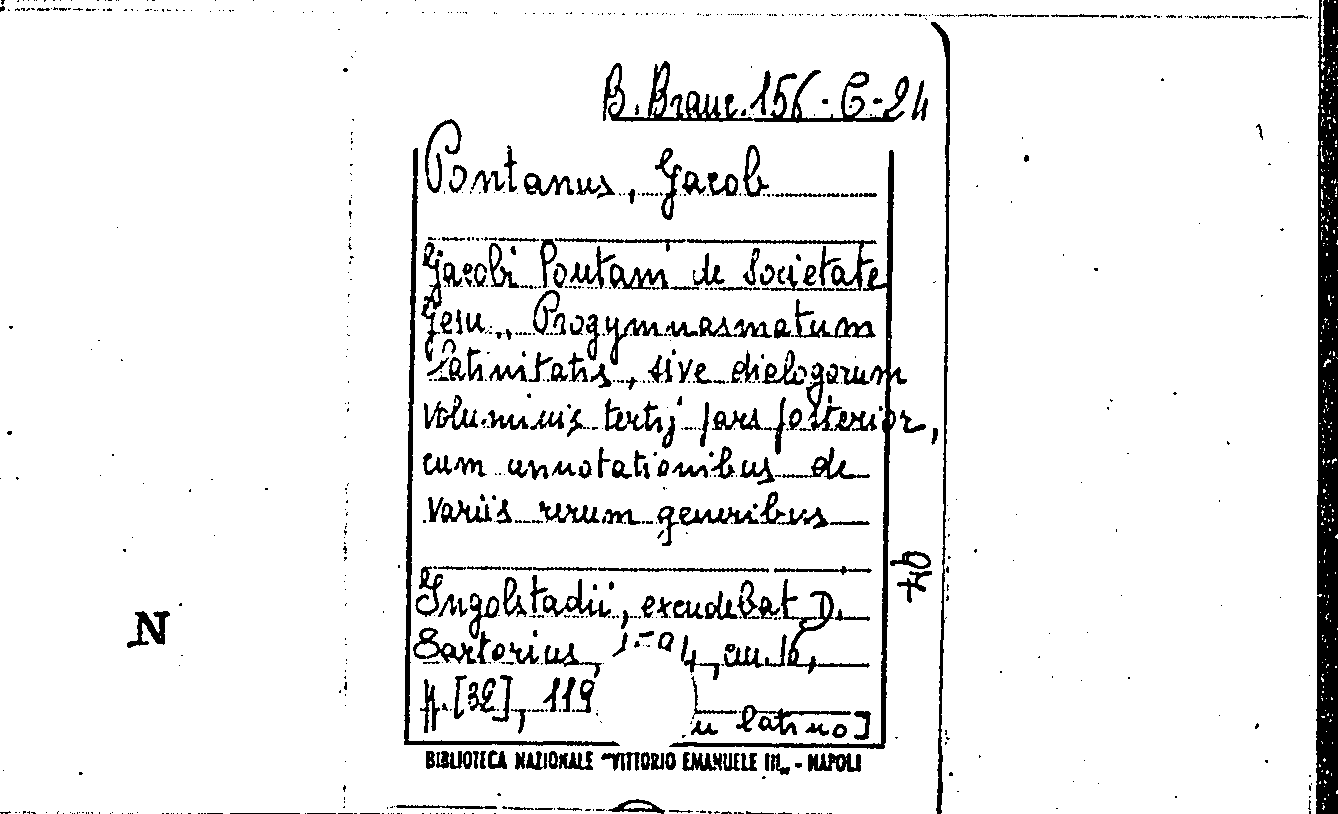 B. Branc. 156-C-24
Pontanus, Jacob
Jacobi Pontani de Societate
Jesu,, Progymnasmatum
Latinitatis, sive dialogorum
voluminis tertij pars posterior,
cum annotationibus de
variis rerum generibus
Ingolstadii, excudebat D.
Sartorius, cm. 16,
p. [32], 119
latino]
BIBLIOTECA NAZIONALE "VITTORIO EMANUELE III„ - NAPOLI
N